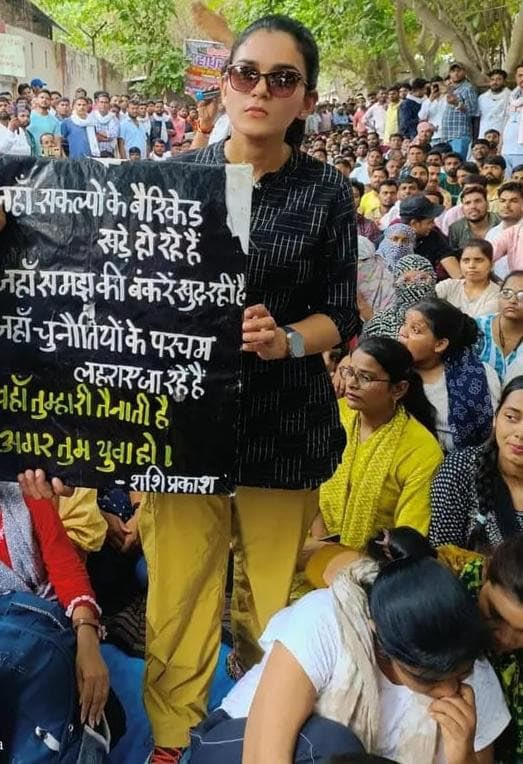 जहाँ संकल्पों के बैरिकेड
खड़े हो रहे हैं
जहाँ समझ की बंकरें खुद रही है
जहाँ चुनौतियों के परचम
लहराए जा रहे हैं
वहाँ तुम्हारी तैनाती है
अगर तुम युवा हो।
- शशि प्रकाश